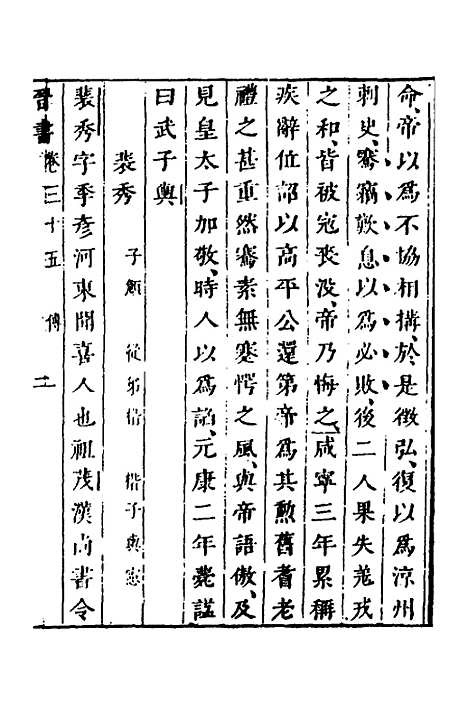 命、帝以爲不協相搆、於是徴弘、復以爲涼州
刺史、騫竊歎息以爲必敗、後二人果失羗戎
之和、皆被寇喪没、帝乃悔之、咸寧三年累稱
疾辭位詔以高平公還第帝爲其勲舊耆老
禮之甚重然騫素無蹇愕之風、與帝語傲、及
見皇太子加敬、時人以爲諂、元康二年薨謚
曰武子輿
裴秀 子頠 從弟楷 楷子輿憲
裴秀字季彥河東聞喜人也祖茂漢尚書令
晉書 卷三十五 傳 二